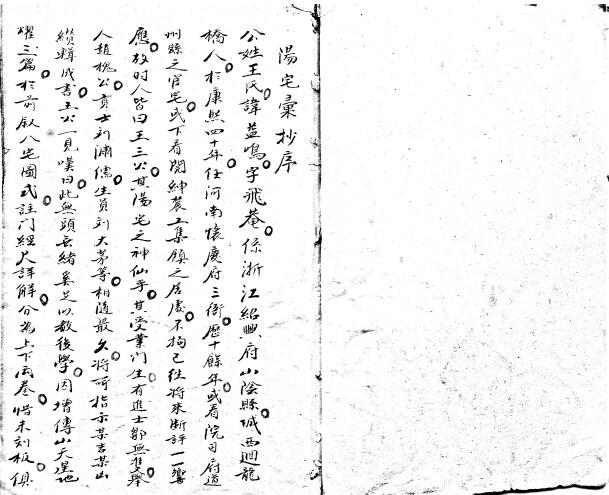 陽宅彙抄序
公姓王氏諱益鳴字飛菴係浙江紹興府山陰縣城西廻龍
橋人於康熙四十年任河南懷慶府三衙歷十餘年或看院司府道
州縣之官宅或下看閱紳農工集鎮之居處不拘已往將來斷評一一響
應故时人皆曰王三公真陽宅之神仙乎其受業门生有進士鄒無隻舉
人趙槐公貢士刘浦儒生員刘大茅等相随最久将所指示某吉某凶
缵輯成書王公一見嘆曰此無頭無緒奚足以教後學因增傳山天星地
耀三篇於前叙八宅圖式註门經尺詳解分為上下两卷惜未刻板俱